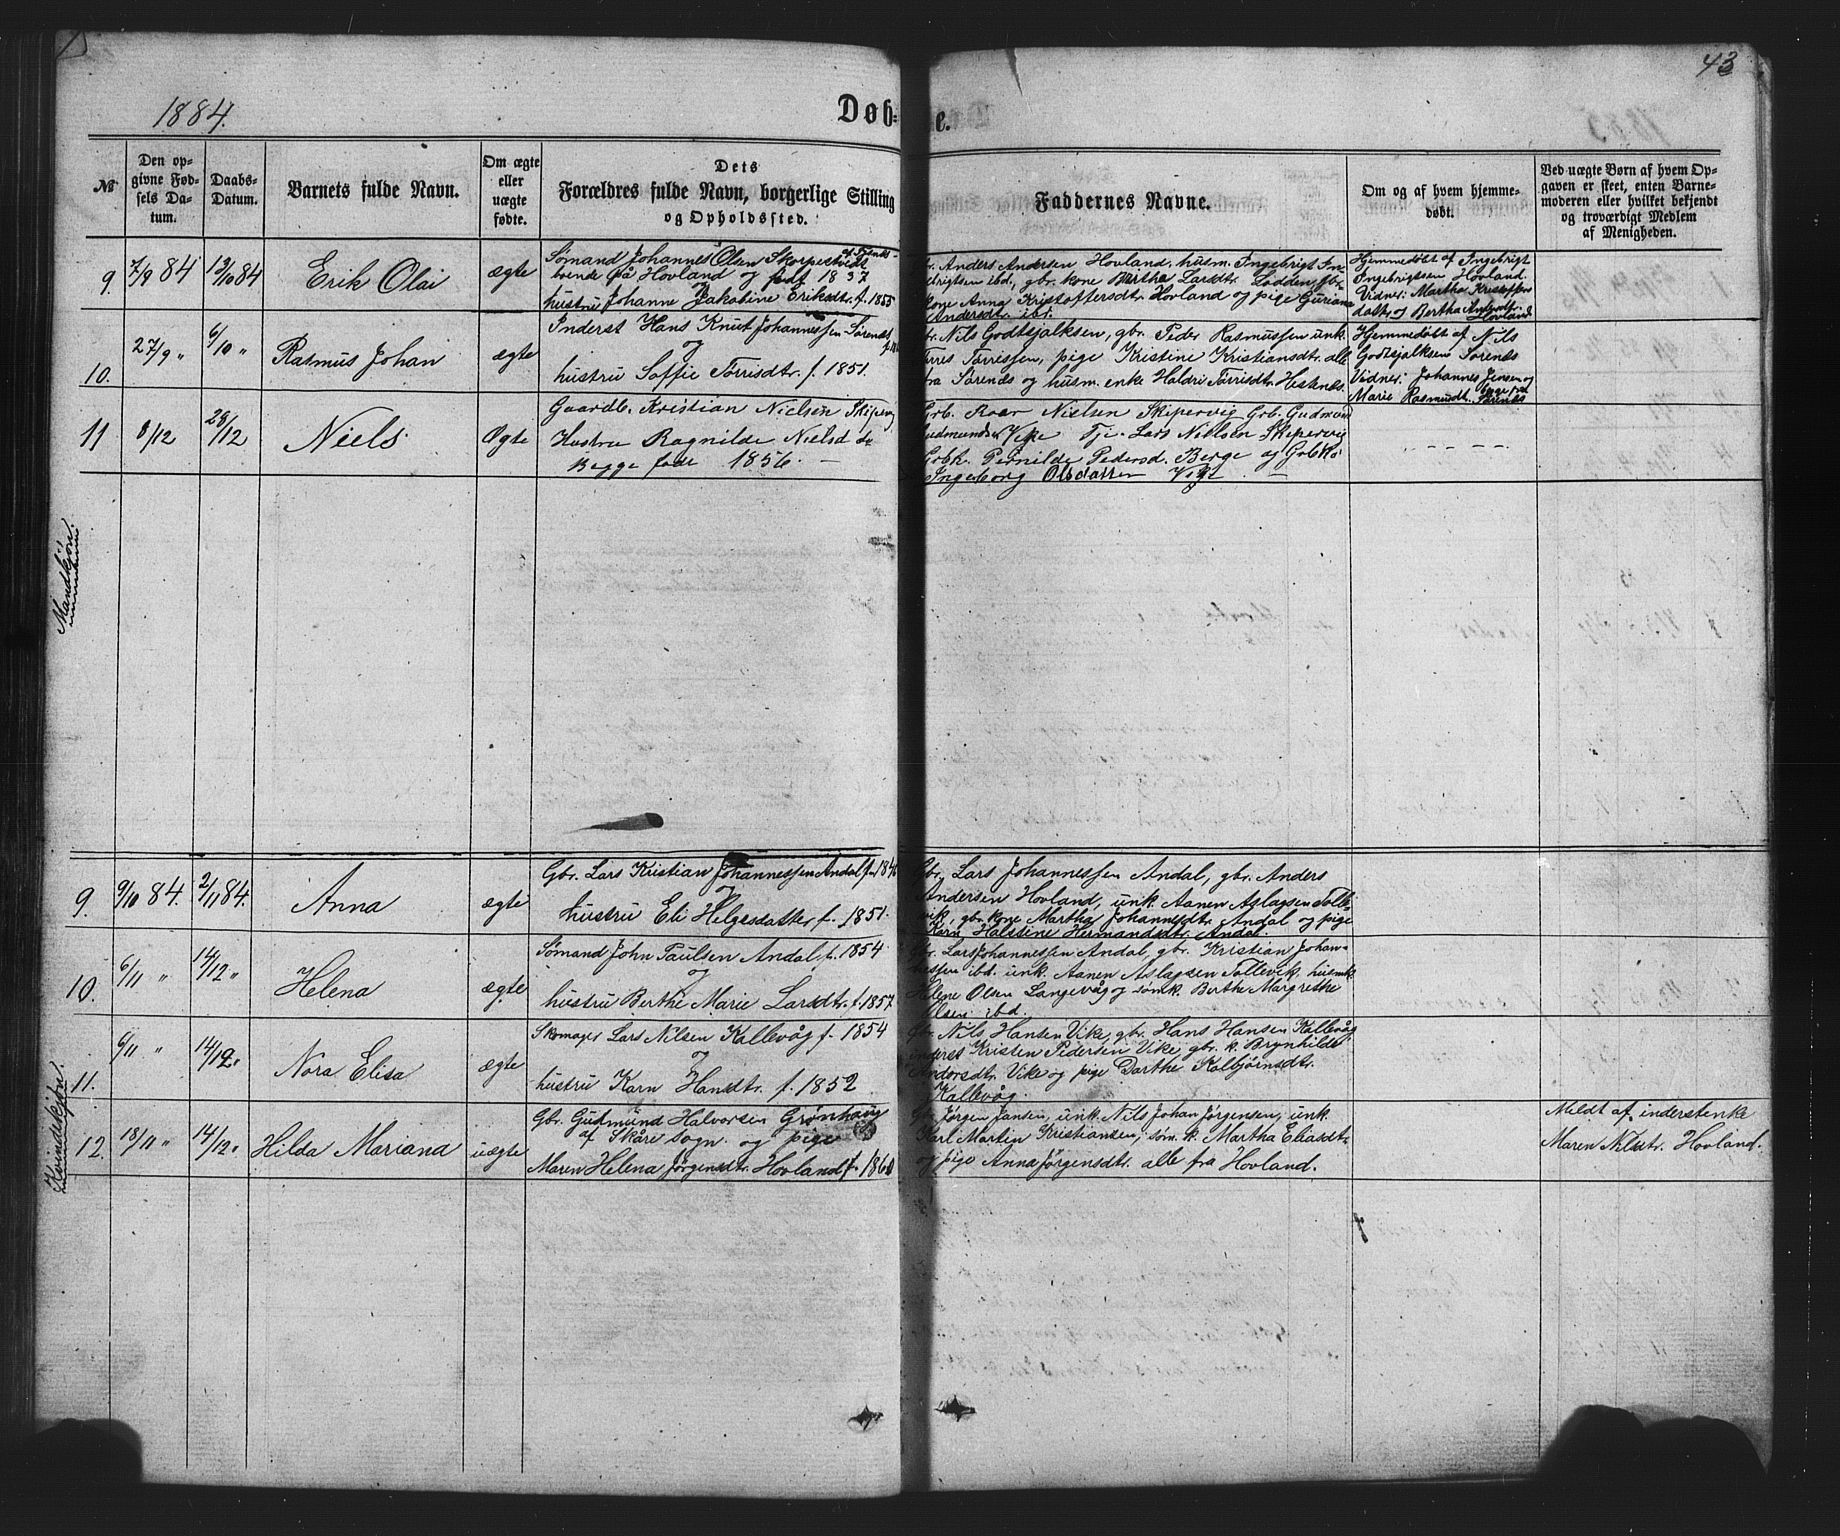 1884.
Døb-
e.
43
№
Den op-
givne Fød-
sels Da-
tum.
Daabs-
Datum.
Barnets fulde Navn.
Om ægte
eller
uægte
fødte.
Dets
Forældres fulde Navn, borgerlige Stilling
og Opholdssted.
Faddernes Navne.
Om og af hvem hjemme-
døbt.
Ved uægte Børn af hvem Op-
gaven er skeet, enten Barne-
moderen eller hvilket bekjendt
og troværdigt Medlem
af Menigheden.
Mandkjøn.
9. 7/9 84 13/10 84 Erik Olai ægte
Sømand Johannes Olsen Skorpestvedt
boende på Hovland og født 1837
hustru Johanne Jakobine Eriksdtr. f. 1855
Anders Andersen Hovland, husm. Ingebrigt In-
gebrigtsen ibd., gbr. kone Marthe Larsdtr. Lodden, gbr.
kone Anna Kristoffersdtr. Hovland og pige Guriane
Andersdt. ibd.
Hjemmedöbt af Ingebrigt
Ingebrigtsen Hovland.
Vidner: Martha Kristoffers
datter og Bertha Andersdtr.
Hovland
10. 27/9 " 6/10 " Rasmus Johan ægte
Inderst Hans Knut Johannessen Sørenæs
og
hustru Soffie Tørrisdtr. f. 1851.
Nils Godtsjalksen, gbr. Peder Rasmussen unk.
Tørres Tørrissen, pige Kristine Kristiansdtr. alle
fra Sørenæs og husm. enke Haldri Tørrisdtr. Hestenæs.
Hjemmedöbt af Nils
Godtsjalksen Sørenæs
Vidner: Johannes Jensen og
Marie Rasmusdt. begge fra
Sørenæs
11 8/12 28/12 Niels Ægte
Gaardb. Kristian Nielsen Skipervg
Hustru Ragnilde Nielsd
Begge føde 1856. —
Grb. Roar Nielsen Skipervig Grb. Gudmun
Gudmundsen Vike Tje. Lars Nielsen Skipervig
Grbk. Pernilde Pedersd. Berge og Grbks
Ingeborg Olsdatter Vige —
- - - -
Kvindekjøn.
9. 9/10 84. 2/11 84. Anna ægte
Gbr. Lars Kristian Johannessen Andal f. 184
og
hustru Eli Helgesdatter f. 1851.
Gbr. Lars Johannessen Andal, gbr. Anders
Andersen Hovland, unk. Aanen Aslagsen Tolle-
vik, gbr. kone Martha Johannesdtr. Andal og pige
Karn Halstine Hermandsdtr. Andal.
10. 6/11 " 14/12 " Helena ægte
Sømand John Paulsen Andal f. 1854
og
hustru Berthe Marie Larsdtr. f. 1857
Gbr. Lars Johannessen Andal, gbr. Kristian Johan-
nessen ibd. unk. Aanen Aslagsen Tollevik, husmk.
Helene Olsen Langevåg og sømk. Berthe Margrethe
Olsen ibd.
11. 9/11 " 14/12 " Nora Elisa ægte
Skomager Lars Nilsen Kallevåg f. 1854
og
hustru Karn Hansdtr. f. 1852
Gbr. Nils Hansen Vike, gbr. Hans Hansen Kallevåg,
inderst Kristen Pedersen Vike, gbr. k. Brynhilde
Andorsdtr. Vike og pige Dorthe Kolbjörnsdtr.
Kallevåg.
12. 18/11 " 14/12 " Hilda Mariana uægte
Gbr. Gudmund Halvorsen Grønhaug
af Skåre sogn og pige
Maren Helena Jørgensdtr. Hovland f. 1860
Gbr. Jørgen Jansen, unk. Nils Johan Jørgensen, unk.
Karl Martin Kristiansen, søm. k. Martha Eliasdt
og pige Anna Jørgensdtr. alle fra Hovland.
Meldt af inderstenke
Maren Nilsdtr. Hovland.